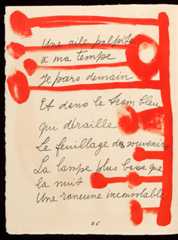 Une aile palpite
a ma tempe
Je pars demain
Et dans le tram bleu
qui déraille
Le feuillage des souvenirs
La lampe plus basse que
la nuit
Une rancune incontestable